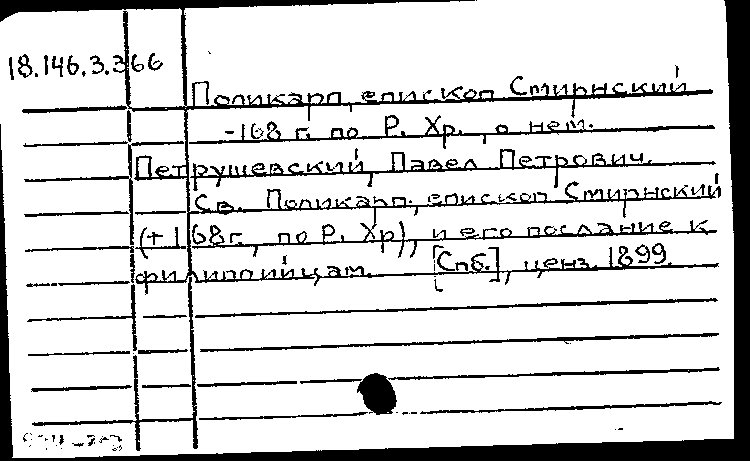 18.146.3.366
Поликарп, епископ Смирнский
-168 г. по Р. Хр., о нем.
Петрушевский, Павел Петрович.
Св. Поликарп, епископ Смирнский
(+ 168 г., по Р. Хр), и его послание к
филиппийцам. [Спб.], ценз. 1899.